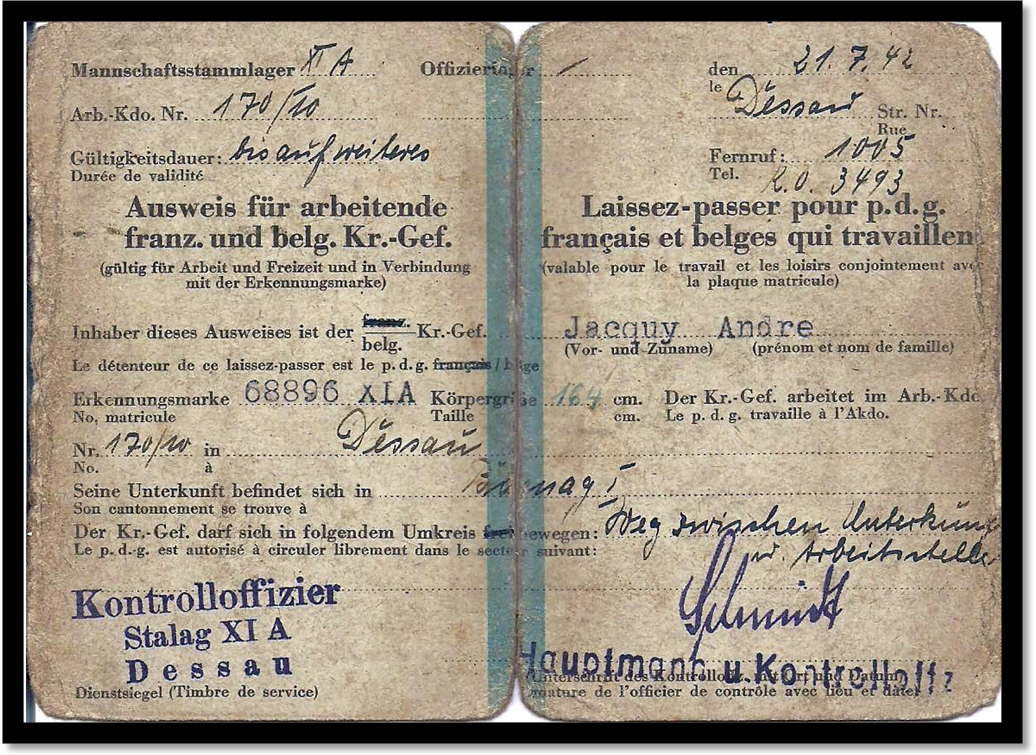 Mannschaftsstammlager XI A Offizierlager —
Arb.-Kdo. Nr. 170/10
Gültigkeitsdauer: bis auf weiteres
Durée de validité
Ausweis für arbeitende
franz. und belg. Kr.-Gef.
(gültig für Arbeit und Freizeit und in Verbindung
mit der Erkennungsmarke)
den 21.7.42
le Dessau Str. Nr.
Rue
Fernruf: 1005
Tel. R.O. 3493
Laissez-passer pour p.d.g.
français et belges qui travaillen
(valable pour le travail et les loisirs conjointement avec
la plaque matricule)
Inhaber dieses Ausweises ist der franz. Kr.-Gef. Jacquy Andre
belg. (Vor- und Zuname) (prénom et nom de famille)
Le détenteur de ce laissez-passer est le p.d.g. français / belge
Erkennungsmarke 68896 XIA Körpergröße 164 cm. Der Kr.-Gef. arbeitet im Arb.-Kdo.
No. matricule Taille cm. Le p.d.g. travaille à l'Akdo.
Nr. 170/10 in Dessau
No. à
Seine Unterkunft befindet sich in
Son cantonnement se trouve à
Der Kr.-Gef. darf sich in folgendem Umkreis frei bewegen: Weg zwischen Unterkunft
Le p.d.-g. est autorisé à circuler librement dans le secteur suivant: u. Arbeitsstelle
Schmidt
Kontrolloffizier
Stalag XI A
Dessau
Dienstsiegel (Timbre de service)
Hauptmann u. Kontrolloffz
Unterschrift des Kontrolloffz. mit Ort und Datum
nature de l'officier de contrôle avec lieu et date)